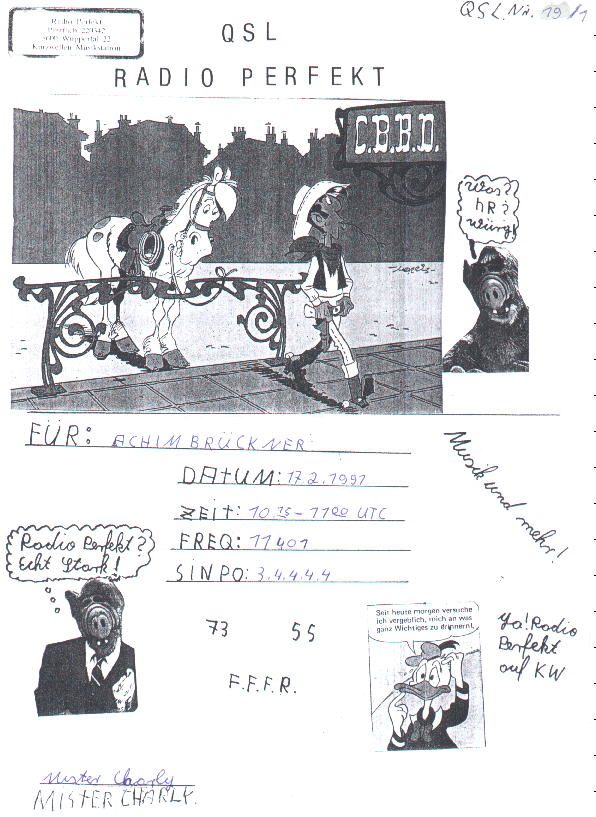 QSL. Nr. 19/1
Radio Perfekt
Postfach 220342
5600 Wuppertal 22
Kurzwellen Musikstation
QSL
RADIO PERFEKT
C.B.B.D.
Was?
hR?
Würg!
FÜR: ACHIM BRÜCKNER
DATUM: 17.2.1991
ZEIT: 10.15-1100 UTC
FREQ: 11401
SINPO: 3.4.4.4.4
Musik und mehr!
Radio Perfekt?
Echt Stark!
73 55
F.F.F.R.
Seit heute morgen versuche
ich vergeblich, mich an was
ganz Wichtiges zu erinnern!
Ya! Radio
Perfekt
auf KW
Mister Charly
MISTER CHARLY.